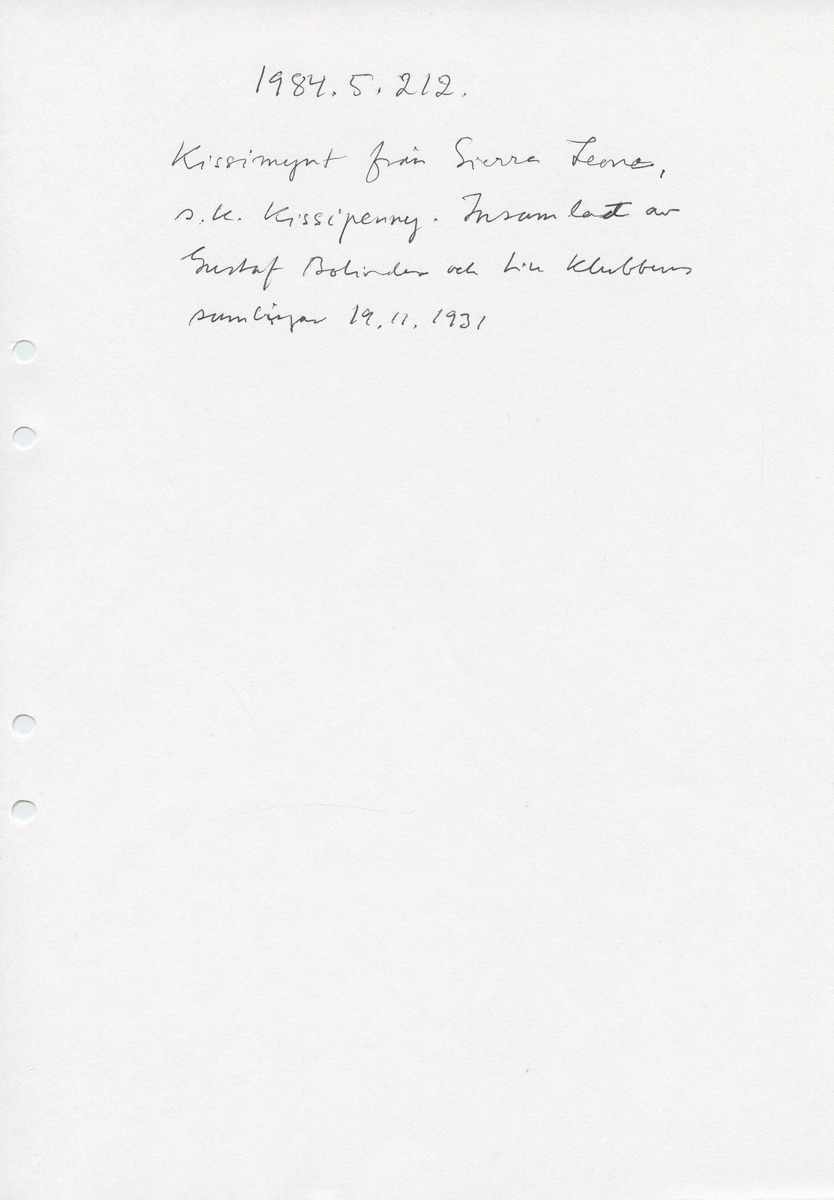 1984.5.212.
Kissimynt från Sierra Leone,
s.k. Kissipenny. Insamlat av
Gustaf Bolinder och till Klubbens
samlingar 19.11.1931